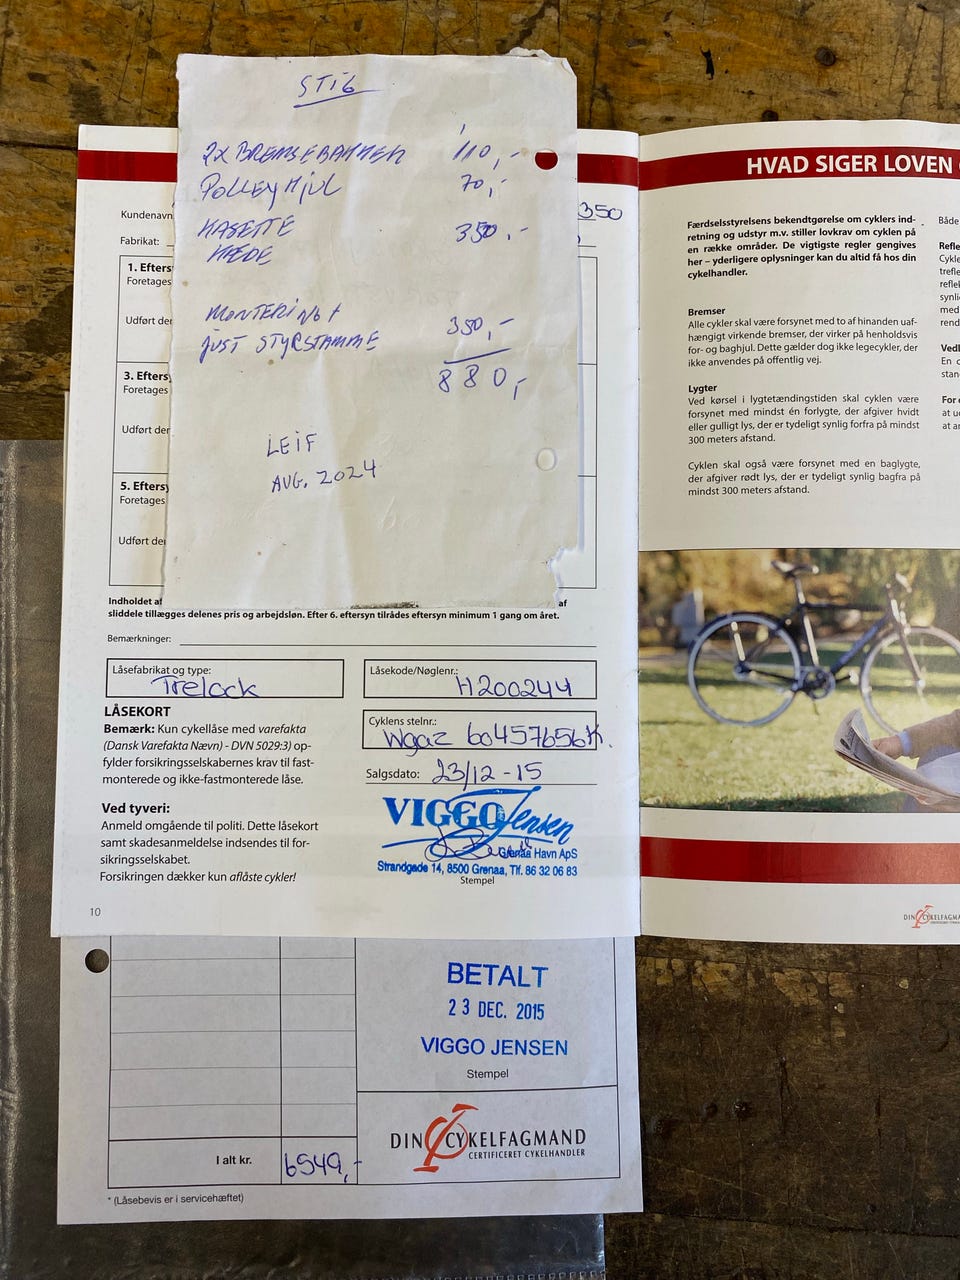 STIG
2X BREMSEBAKKER 110,-
POLLEYHJUL 70,-
KASETTE 350,-
KÆDE
MONTERING +
JUST STYRSTAMME 350,-
880,-
LEIF
AUG. 2024
Kundenavn
350
Fabrikat:
1. Efters
Foretages
Udført der
3. Efters
Foretages
Udført der
5. Efters
Foretages
Udført der
Indholdet af
af
sliddele tillægges delenes pris og arbejdsløn. Efter 6. eftersyn tilrådes eftersyn minimum 1 gang om året.
Bemærkninger:
Låsefabrikat og type:
Trelock
Låsekode/Nøglenr.:
H200244
LÅSEKORT
Bemærk: Kun cykellåse med varefakta
(Dansk Varefakta Nævn) - DVN 5029:3) op-
fylder forsikringsselskabernes krav til fast-
monterede og ikke-fastmonterede låse.
Cyklens stelnr.:
Wgaz 60457656K.
Salgsdato: 23/12-15
Ved tyveri:
Anmeld omgående til politi. Dette låsekort
samt skadesanmeldelse indsendes til for-
sikringsselskabet.
Forsikringen dækker kun aflåste cykler!
VIGGO Jensen
Grenaa Havn ApS
Strandgade 14, 8500 Grenaa, Tlf. 86 32 06 83
Stempel
10
BETALT
23 DEC. 2015
VIGGO JENSEN
Stempel
DIN CYKELFAGMAND
CERTIFICERET CYKELHANDLER
I alt kr. 6549,-
* (Låsebevis er i servicehæftet)
HVAD SIGER LOVEN
Færdselsstyrelsens bekendtgørelse om cyklers ind-
retning og udstyr m.v. stiller lovkrav om cyklen på
en række områder. De vigtigste regler gengives
her – yderligere oplysninger kan du altid få hos din
cykelhandler.
Bremser
Alle cykler skal være forsynet med to af hinanden uaf-
hængigt virkende bremser, der virker på henholdsvis
for- og baghjul. Dette gælder dog ikke legecykler, der
ikke anvendes på offentlig vej.
Lygter
Ved kørsel i lygtetændingstiden skal cyklen være
forsynet med mindst én forlygte, der afgiver hvidt
eller gulligt lys, der er tydeligt synlig forfra på mindst
300 meters afstand.
Cyklen skal også være forsynet med en baglygte,
der afgiver rødt lys, der er tydeligt synlig bagfra på
mindst 300 meters afstand.
Både
Refle
Cykle
trefle
reflek
synlig
med
rend
Vedl
En c
stan
For
at u
at a
DIN CYKELFAGMAND